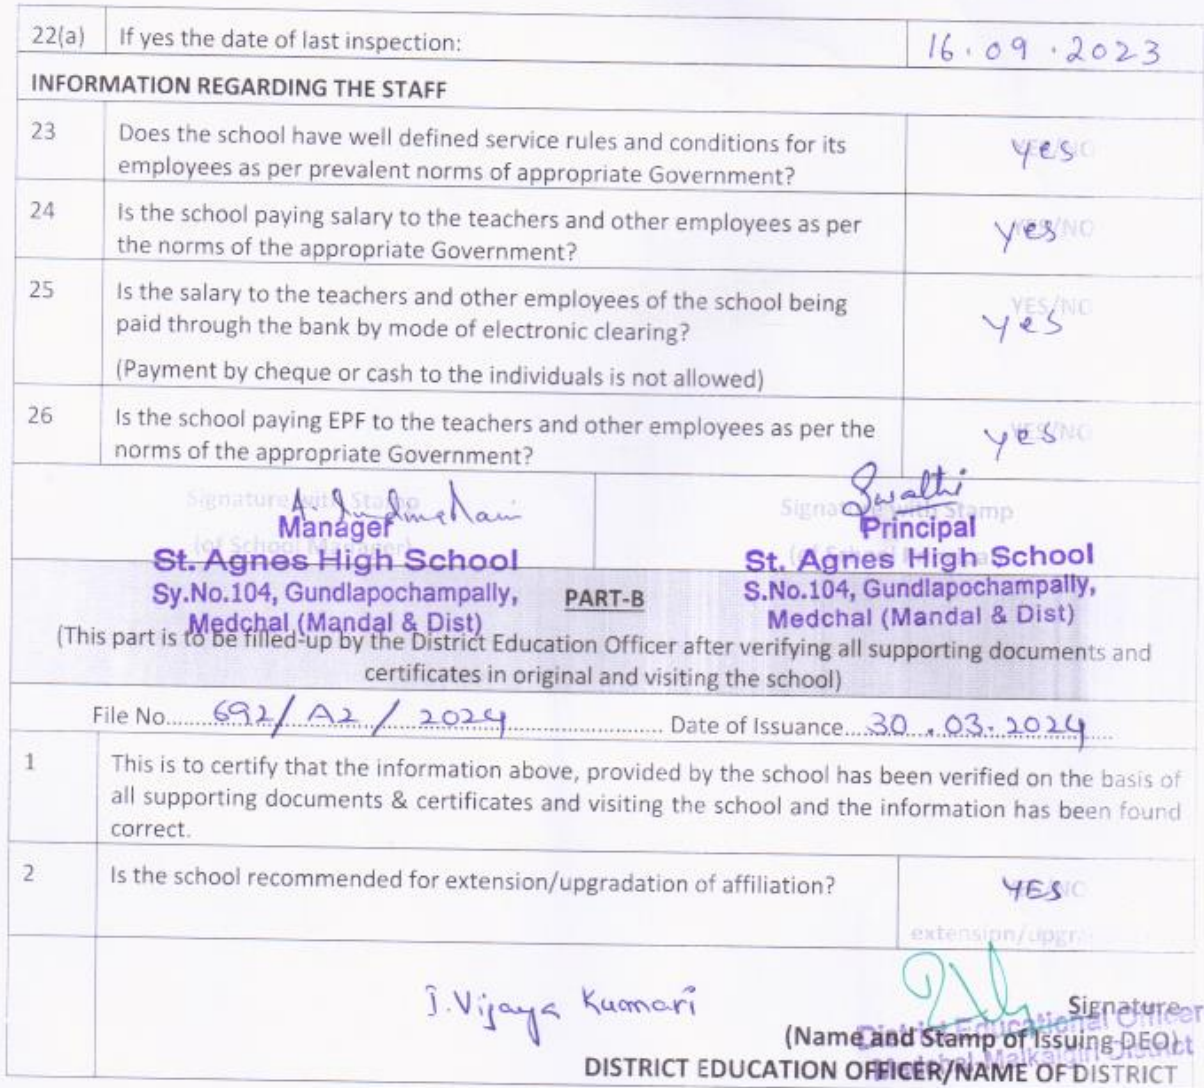 22(a) If yes the date of last inspection: 16.09.2023
INFORMATION REGARDING THE STAFF
23 Does the school have well defined service rules and conditions for its
employees as per prevalent norms of appropriate Government?
yes
YES/NO
24 Is the school paying salary to the teachers and other employees as per
the norms of the appropriate Government?
yes
YES/NO
25 Is the salary to the teachers and other employees of the school being
paid through the bank by mode of electronic clearing?
(Payment by cheque or cash to the individuals is not allowed)
YES/NO
yes
26 Is the school paying EPF to the teachers and other employees as per the
norms of the appropriate Government?
yes
YES/NO
Signature with Stamp
(of School Manager)
Manager
St. Agnes High School
Sy.No.104, Gundlapochampally,
Medchal (Mandal & Dist)
Swathi
Signature with Stamp
Principal
St. Agnes High School
S.No.104, Gundlapochampally,
Medchal (Mandal & Dist)
PART-B
(This part is to be filled-up by the District Education Officer after verifying all supporting documents and
certificates in original and visiting the school)
File No. 692/A2/2024 Date of Issuance 30.03.2024
1 This is to certify that the information above, provided by the school has been verified on the basis of
all supporting documents & certificates and visiting the school and the information has been found
correct.
2 Is the school recommended for extension/upgradation of affiliation? YES
extension/upgra
I. Vijaya Kumari
Signature
(Name and Stamp of Issuing DEO)
District Educational Officer
Medchal Malkajgiri District
DISTRICT EDUCATION OFFICER/NAME OF DISTRICT